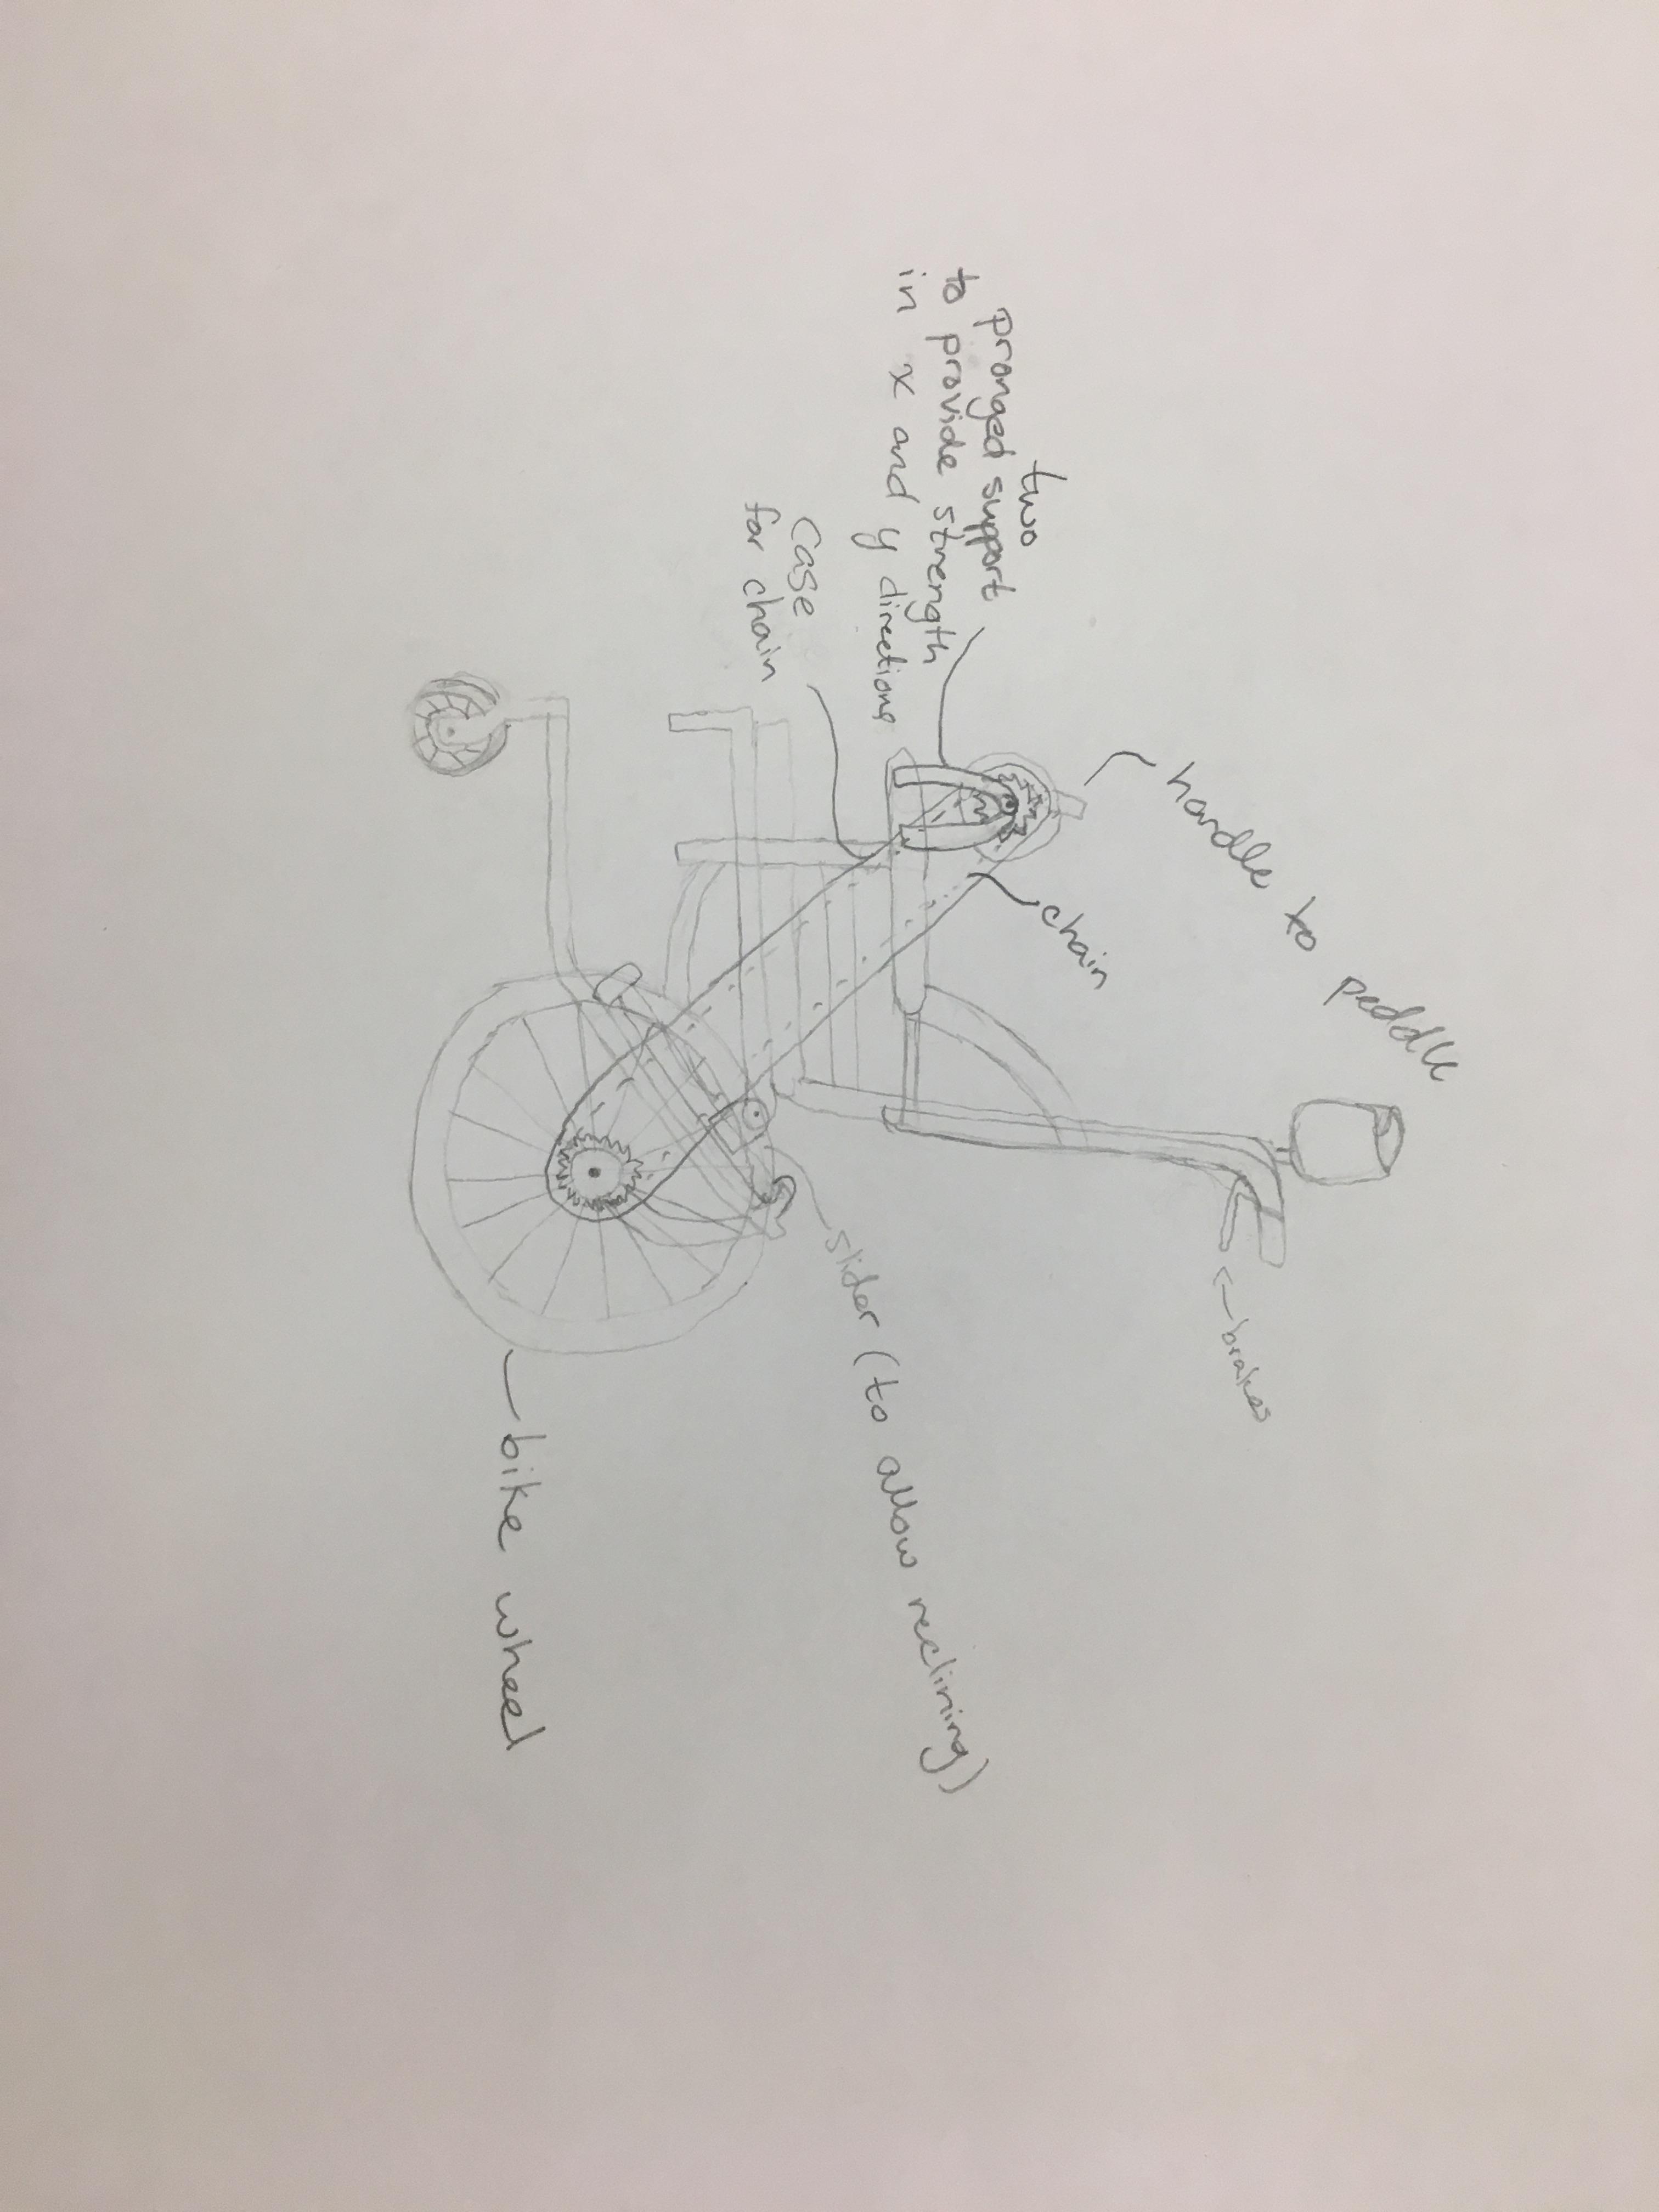 handle to peddle
← brakes
chain
two
pronged support
to provide strength
in x and y directions
slider (to allow reclining)
case
for chain
bike wheel